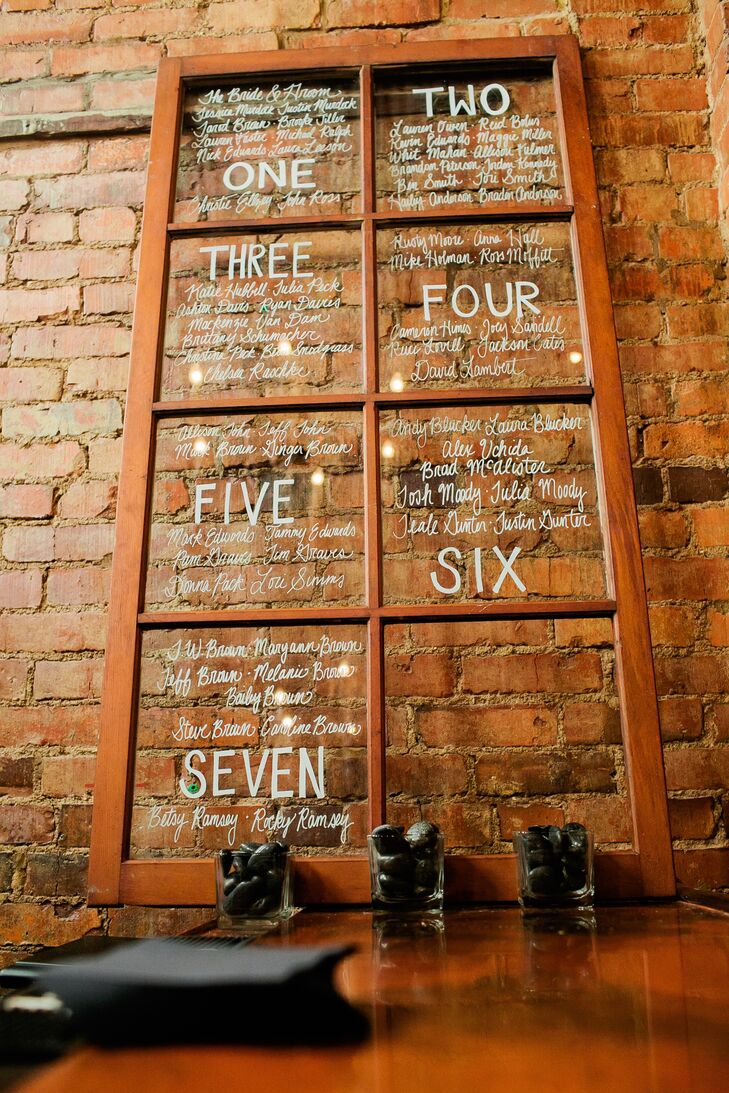 The Bride & Groom
Jessica Murdock Justin Murdock
Jarod Brown · Brooke
Lauren · Michael Ralph
Nick Edwards Laura Leeson
ONE
Christie Ellzey · John Ross
TWO
Lauren Owen · Reid Bolus
Kevin Edwards · Maggie Miller
Whit Mahan · Allison Fulmer
Brandon Pierson · Jordan Kennedy
Ben Smith · Tori Smith
Hailey Anderson · Braden Anderson
THREE
Katie Hubbell · Julia Peck
Ashton Davis · Ryan Davies
Mackenzie Van Dam
Brittany Schumacher
Christina Pack Ben Snodgrass
Chelsea Raschke
Rusty Moore · Anna Hall
Mike Holman · Ross Moffitt
FOUR
Cameron Hines · Joey Sandell
Reice Lovell · Jackson Cates
David Lambert
Allison John · Jeff John
Mark Brown Ginger Brown
FIVE
Mack Edwards · Tammy Edwards
Pam Graves · Tim Graves
Donna Pack Lori Simms
Andy Blucker Laura Blucker
Alex Uchida
Brad McAlister
Josh Moody · Julia Moody
Teale Gunter · Justin Gunter
SIX
J.W Brown · Maryann Brown
Jeff Brown · Melanie Brown
Baily Brown
Steve Brown · Caroline Brown
SEVEN
Betsy Ramsey · Rocky Ramsey